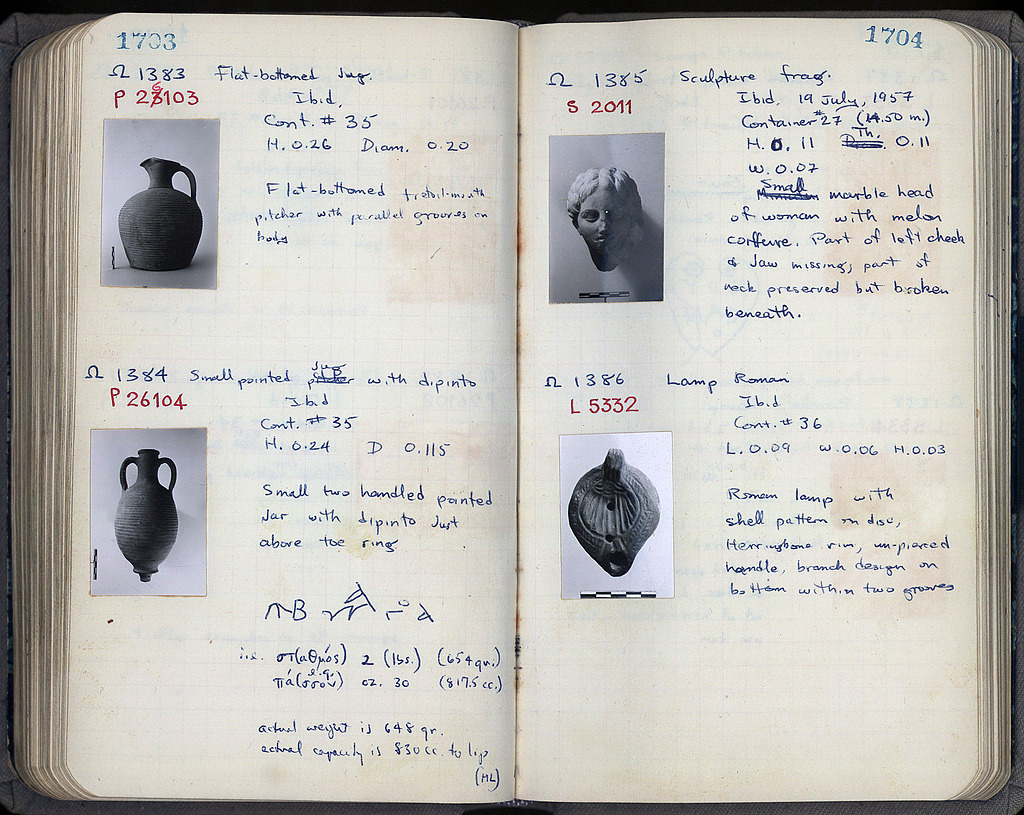 1703
Ω 1383 Flat-bottomed Jug.
P 26103
Ibid.
Cont. # 35
H. 0.26 Diam. 0.20
Flat-bottomed trefoil mouth
pitcher with parallel grooves on
body
Ω 1384 Small pointed Jug with dipinto
P 26104
Ibid
Cont. # 35
H. 0.24 D 0.115
Small two handled pointed
Jar with dipinto Just
above toe ring
i.e. στ(αθμός) 2 (lbs.) (654 gr.)
oz. 30 (817.5 cc.)
actual weight is 648 gr.
actual capacity is 830 cc. to lip
(ML)
1704
Ω 1385 Sculpture frag.
S 2011
Ibid. 19 July, 1957
Container #27 (14.50 m.)
H. 0.11 Th. 0.11
W. 0.07
Small marble head
of woman with melon
coiffure. Part of left cheek
& Jaw missing; part of
neck preserved but broken
beneath.
Ω 1386 Lamp Roman
L 5332
Ibid
Cont. # 36
L. 0.09 W. 0.06 H. 0.03
Roman lamp with
shell pattern on disc,
Herringbone rim, un-pierced
handle, branch design on
bottom within two grooves